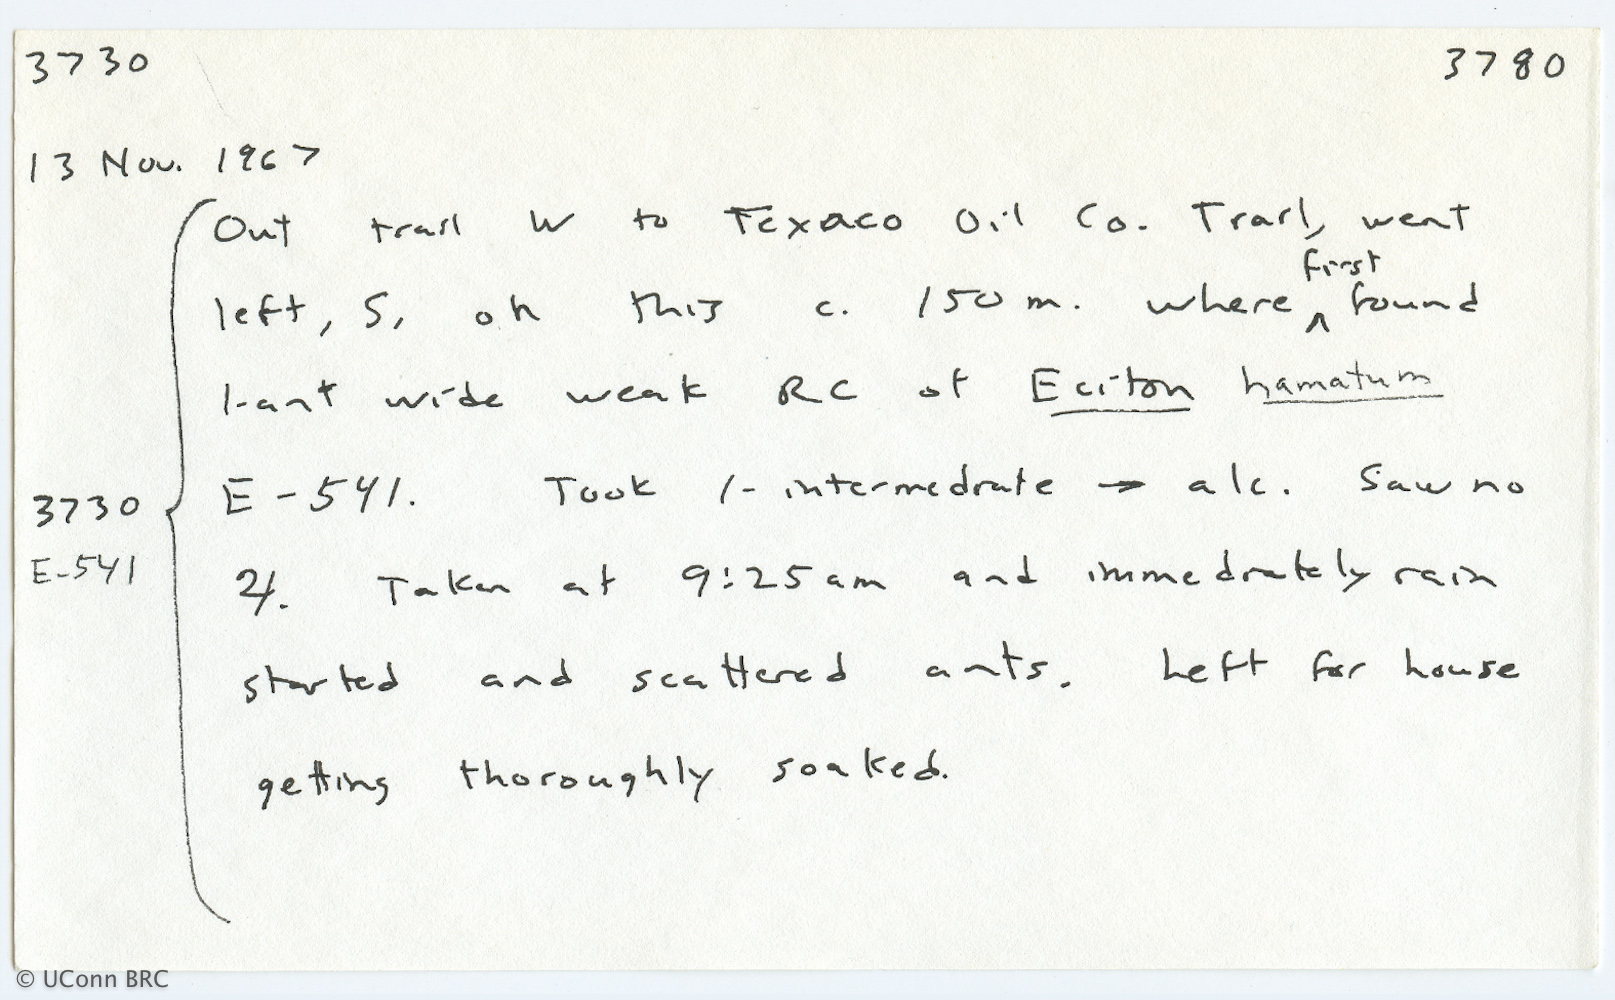 3730 3780
13 Nov. 1967
Out trail W to Texaco Oil Co. Trail, went
left, S, on this c. 150 m. where first found
1-ant wide weak RC of Eciton hamatum
3730 E-541. Took 1- intermediate → alc. Saw no
E-541 ♃. Taken at 9:25 am and immediately rain
started and scattered ants. Left for house
getting thoroughly soaked.
© UConn BRC